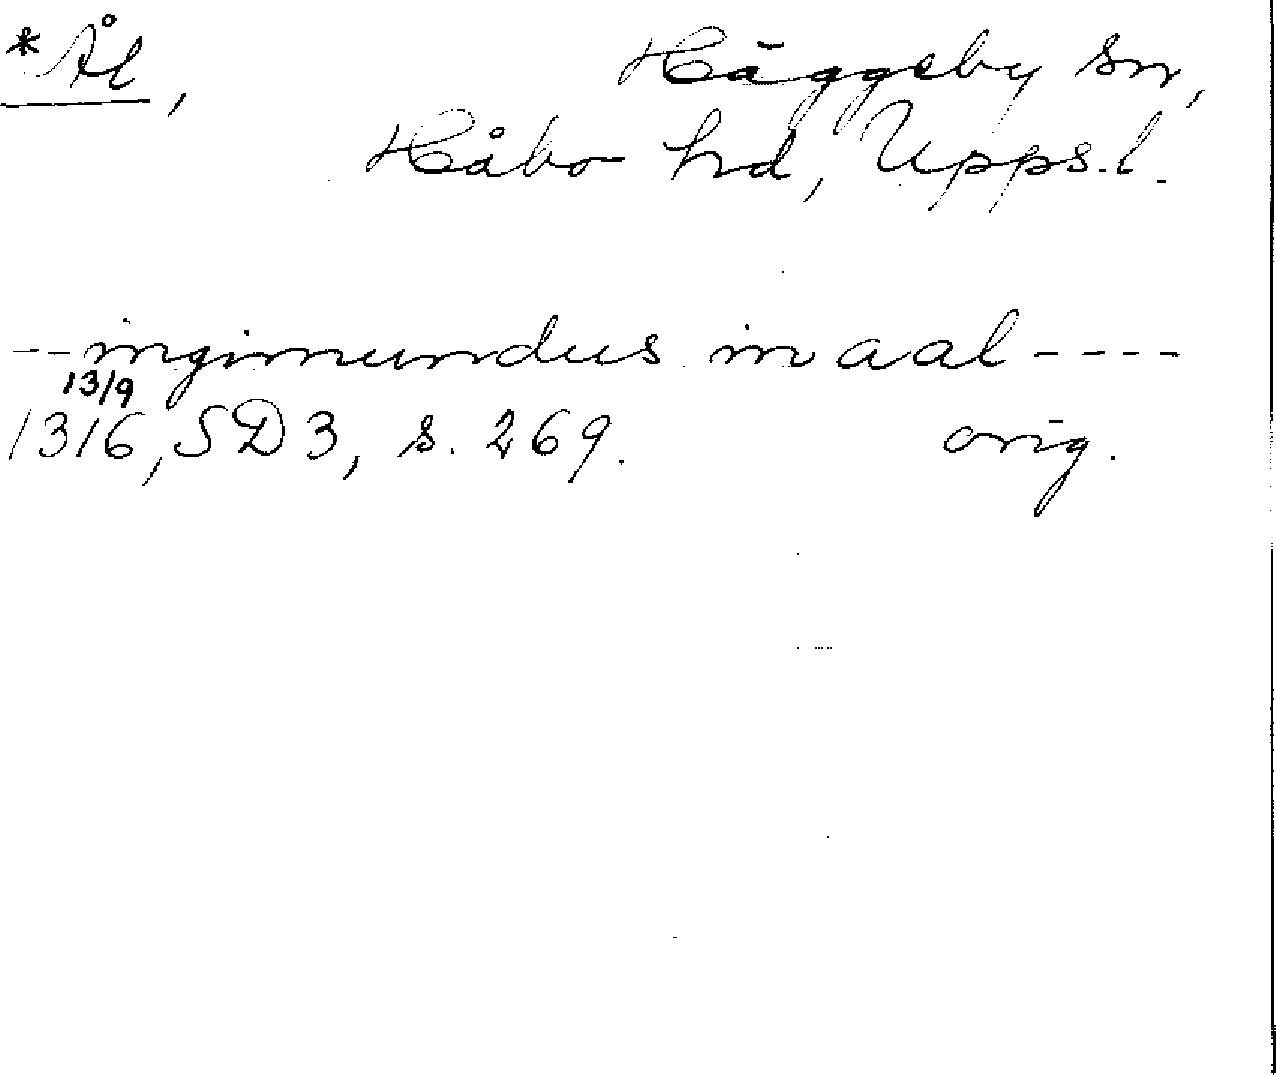 *Ål, Häggeby sn,
Håbo hd, Upps.l.
-- ingimundus in aal ----
13/9
1316, SD 3, s. 269. orig.